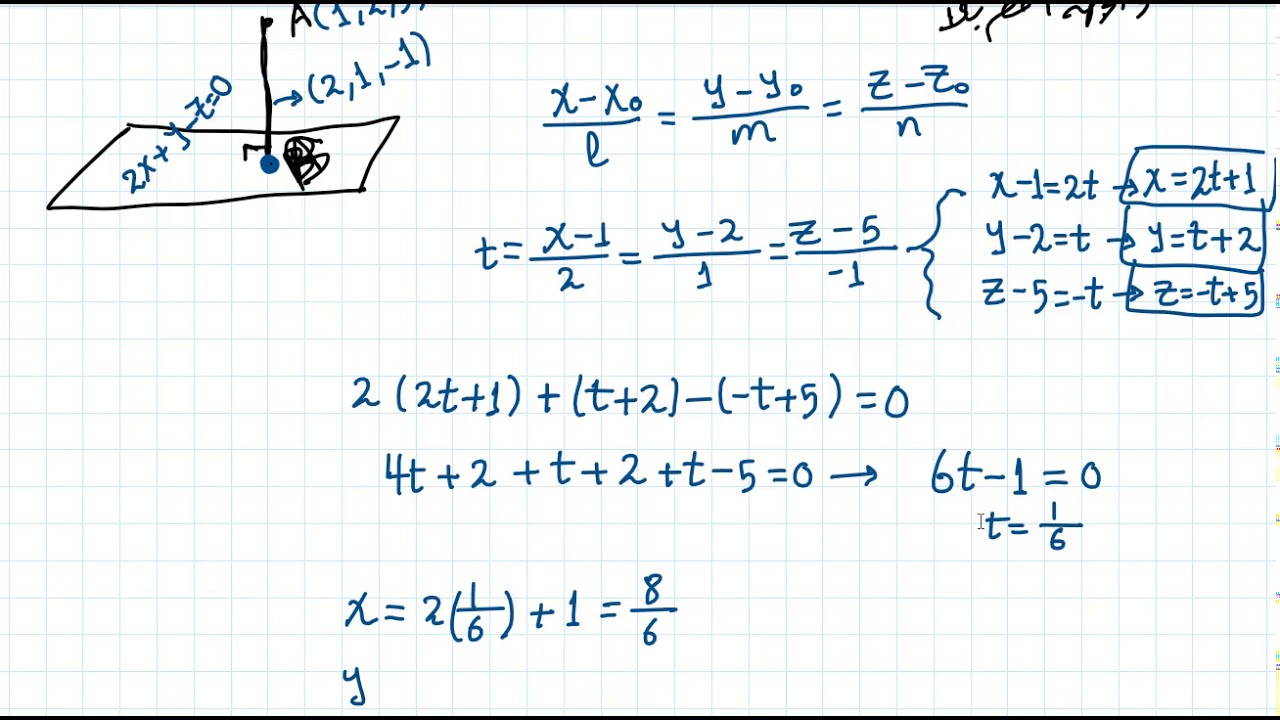 A(1,2,
(2,1,-1)
2x+y-z=0
(x-x₀)/l = (y-y₀)/m = (z-z₀)/n
t = (x-1)/2 = (y-2)/1 = (z-5)/-1
x-1=2t → x=2t+1
y-2=t → y=t+2
z-5=-t → z=-t+5
2(2t+1)+(t+2)-(-t+5)=0
4t+2+t+2+t-5=0 → 6t-1=0
t=1/6
x=2(1/6)+1=8/6
y